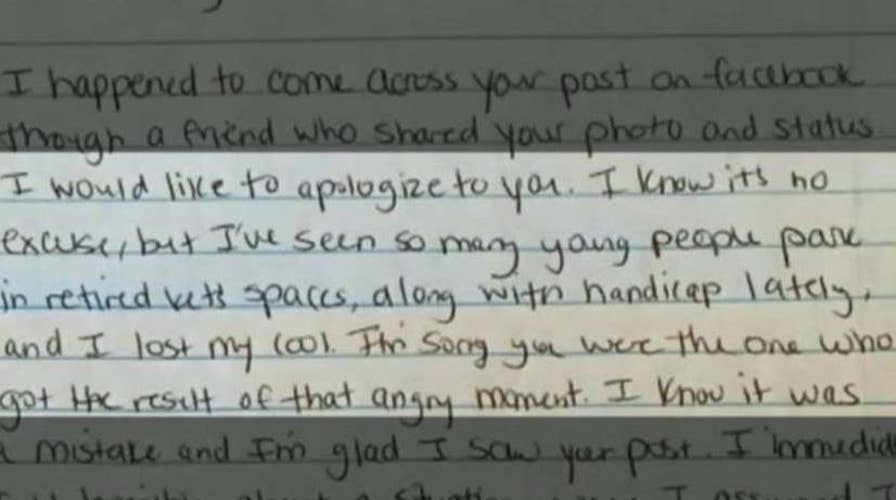 I happened to come across your post on facebook
through a friend who shared your photo and status
I would like to apologize to you. I know it's no
excuse, but I've seen so many young people park
in retired vets spaces, along with handicap lately,
and I lost my cool. I'm sorry you were the one who
got the result of that angry moment. I know it was
a mistake and I'm glad I saw your post. I immedia
about a situation